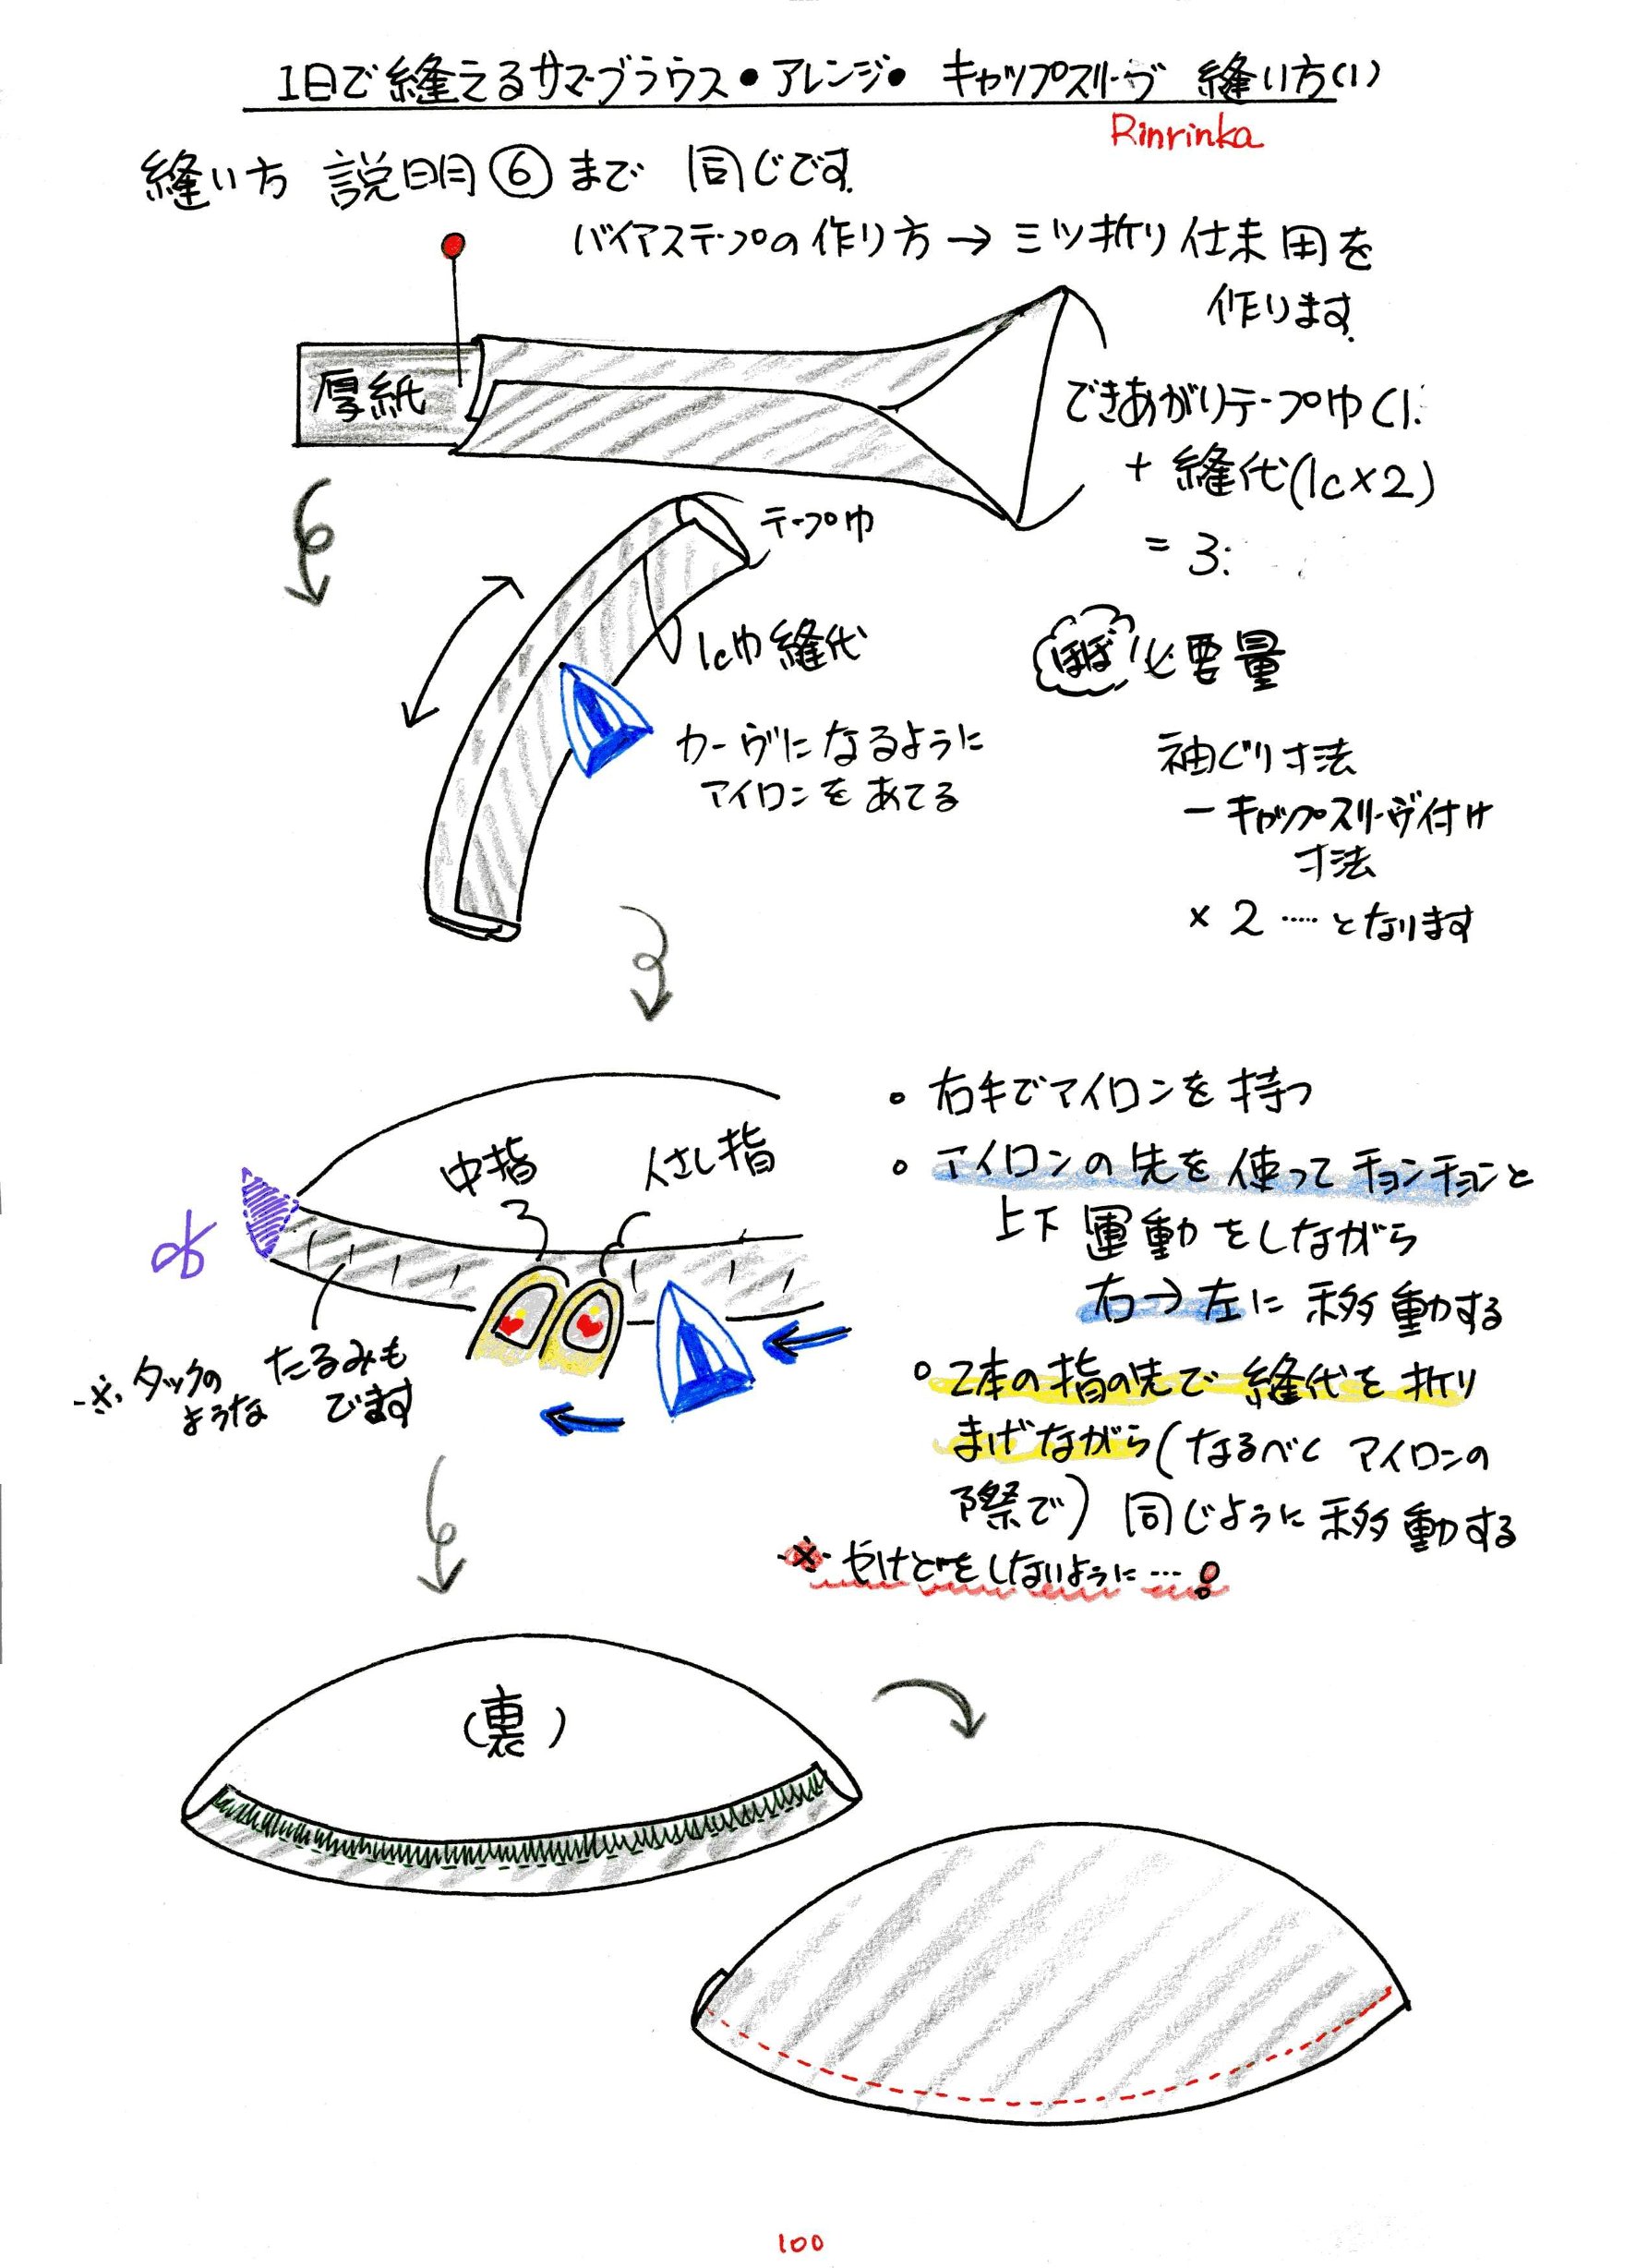 1日で縫えるサマーブラウス・アレンジ・ キャップスリーヴ 縫い方(1)
Rinrinka
縫い方 説明⑥まで 同じです。
バイアステープの作り方→ミツ折り仕末用を
作ります。
厚紙
できあがりテープ巾(1.
+ 縫代(1c×2)
= 3.
テープ巾
1c巾縫代
カーヴになるように
アイロンをあてる
ほぼ必要量
袖ぐり寸法
ーキャップスリーヴ付け
寸法
×2……となります
中指
人さし指
※タックの
ような
たるみも
でます
・右手でアイロンを持つ
・アイロンの先を使ってチョンチョンと
上下運動をしながら
右→左に移動する
・2本の指の先で縫代を折り
まげながら(なるべくアイロンの
際で)同じように移動する
※やけどをしないように…!
(裏)
100